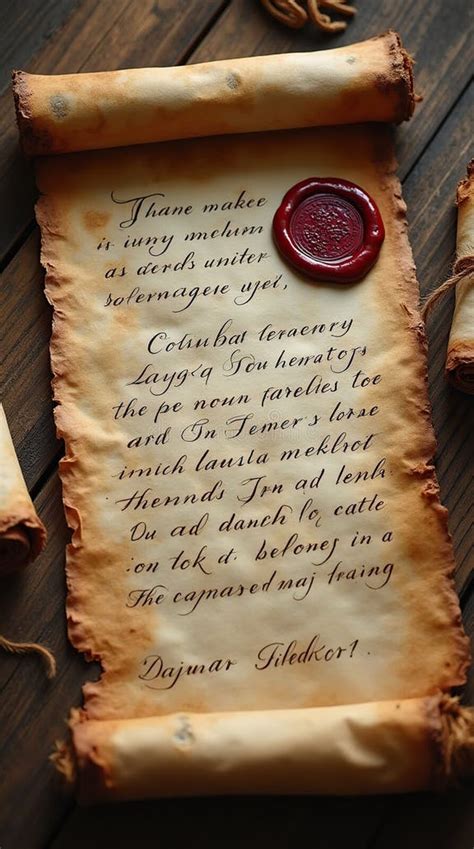 Thane makee
is iuny mnclum
as derds uniter
sofernagere yjet,
Colsubat leraenory
Laygla Sou hematojs
the pe noun farelies toe
ard On Temer's lorse
imich lausla meklrot
thennds Jrn ad lenk
Du ad danch lo, catle
:on tok at. belones in a
The capnased maj fraing
Dajunar Filedkor1.